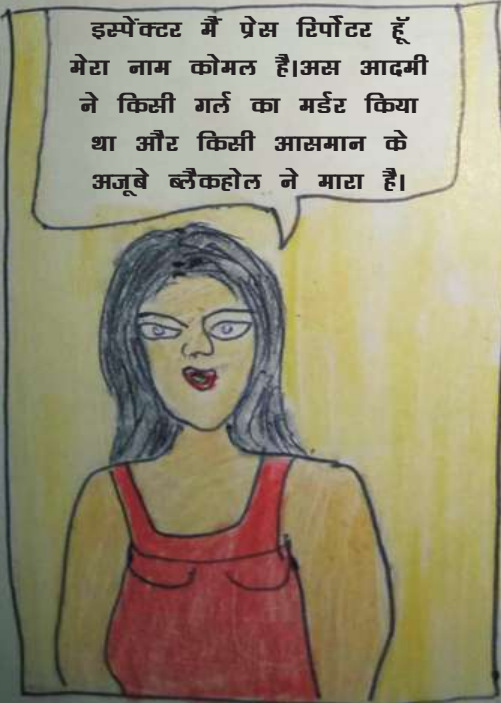 इस्पेंक्टर मैं प्रेस रिर्पोटर हूॅ
मेरा नाम कोमल है।अस आदमी
ने किसी गर्ल का मर्डर किया
था और किसी आसमान के
अजूबे ब्लैकहोल ने मारा है।